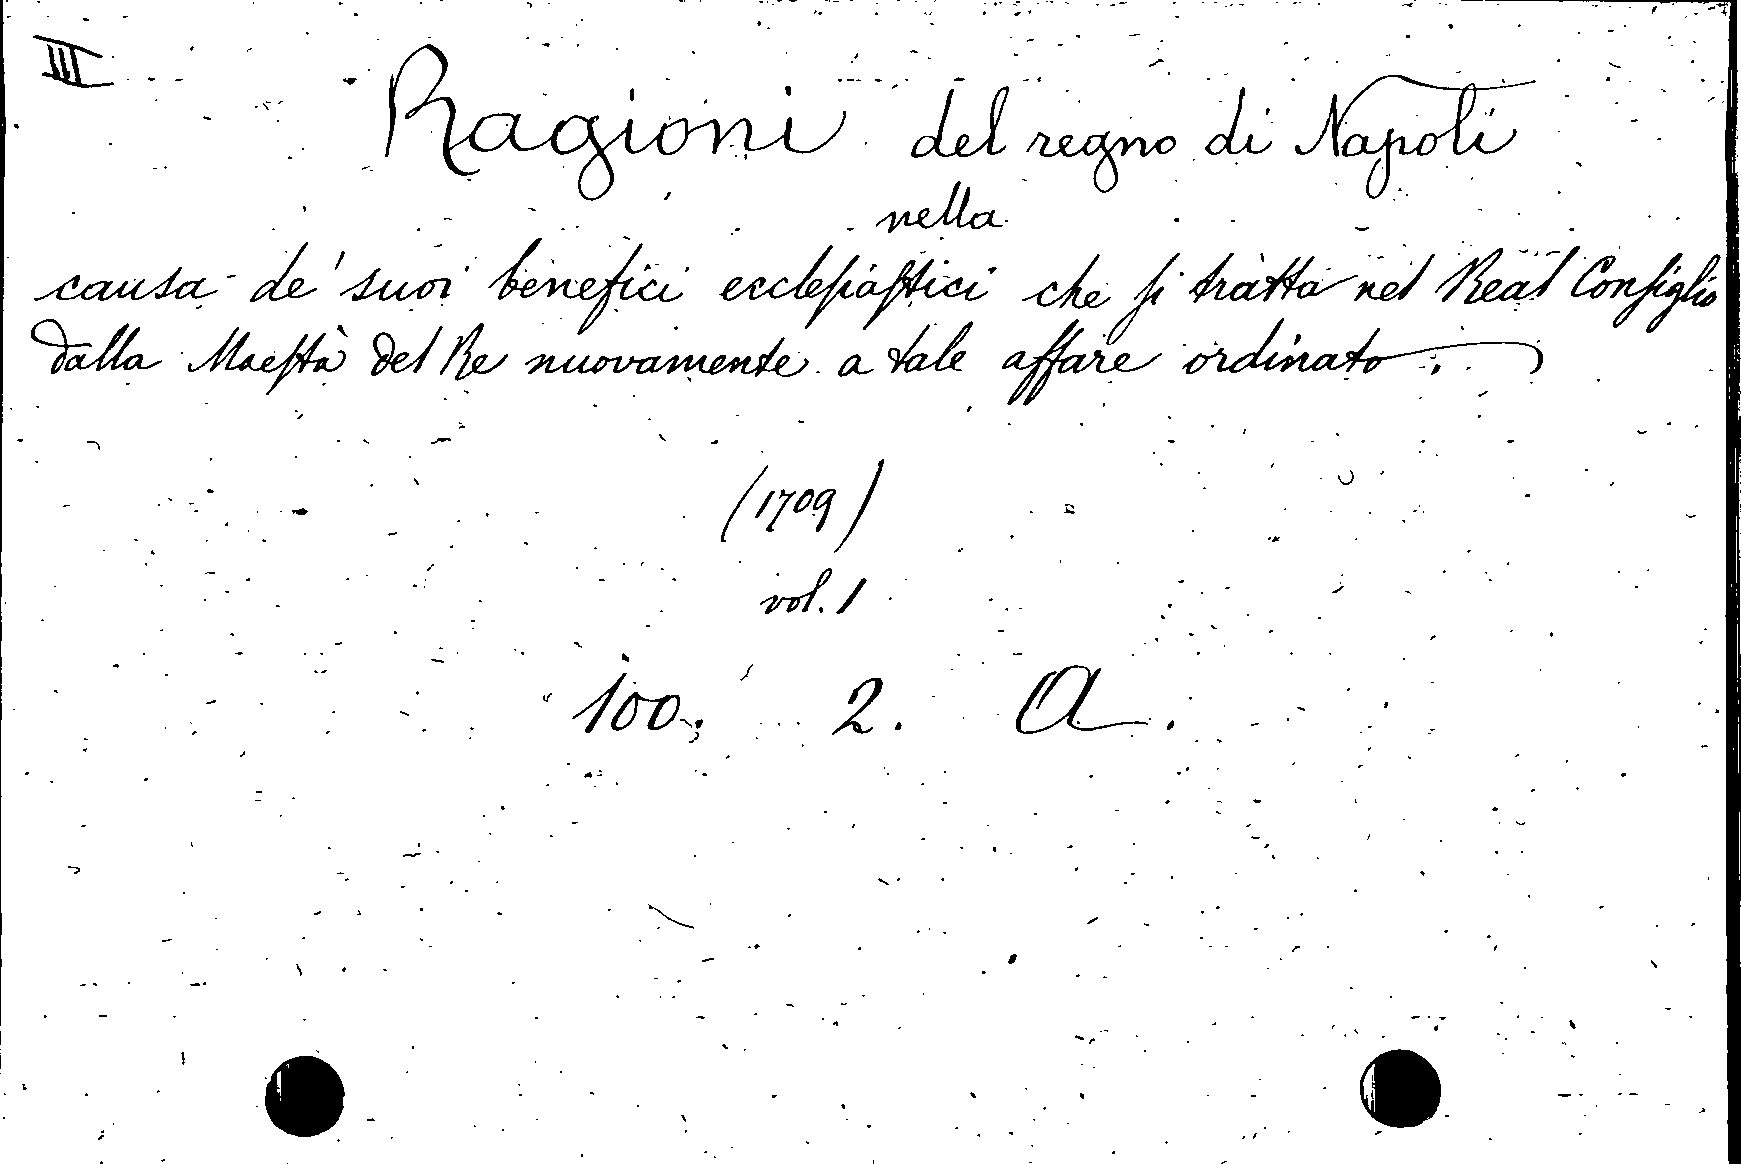 III
Ragioni del regno di Napoli
nella
causa de' suoi benefici ecclesiastici che si tratta nel Real Consiglio
dalla Maestà del Re nuovamente a tale affare ordinato.
(1709)
vol. 1
100. 2. A.